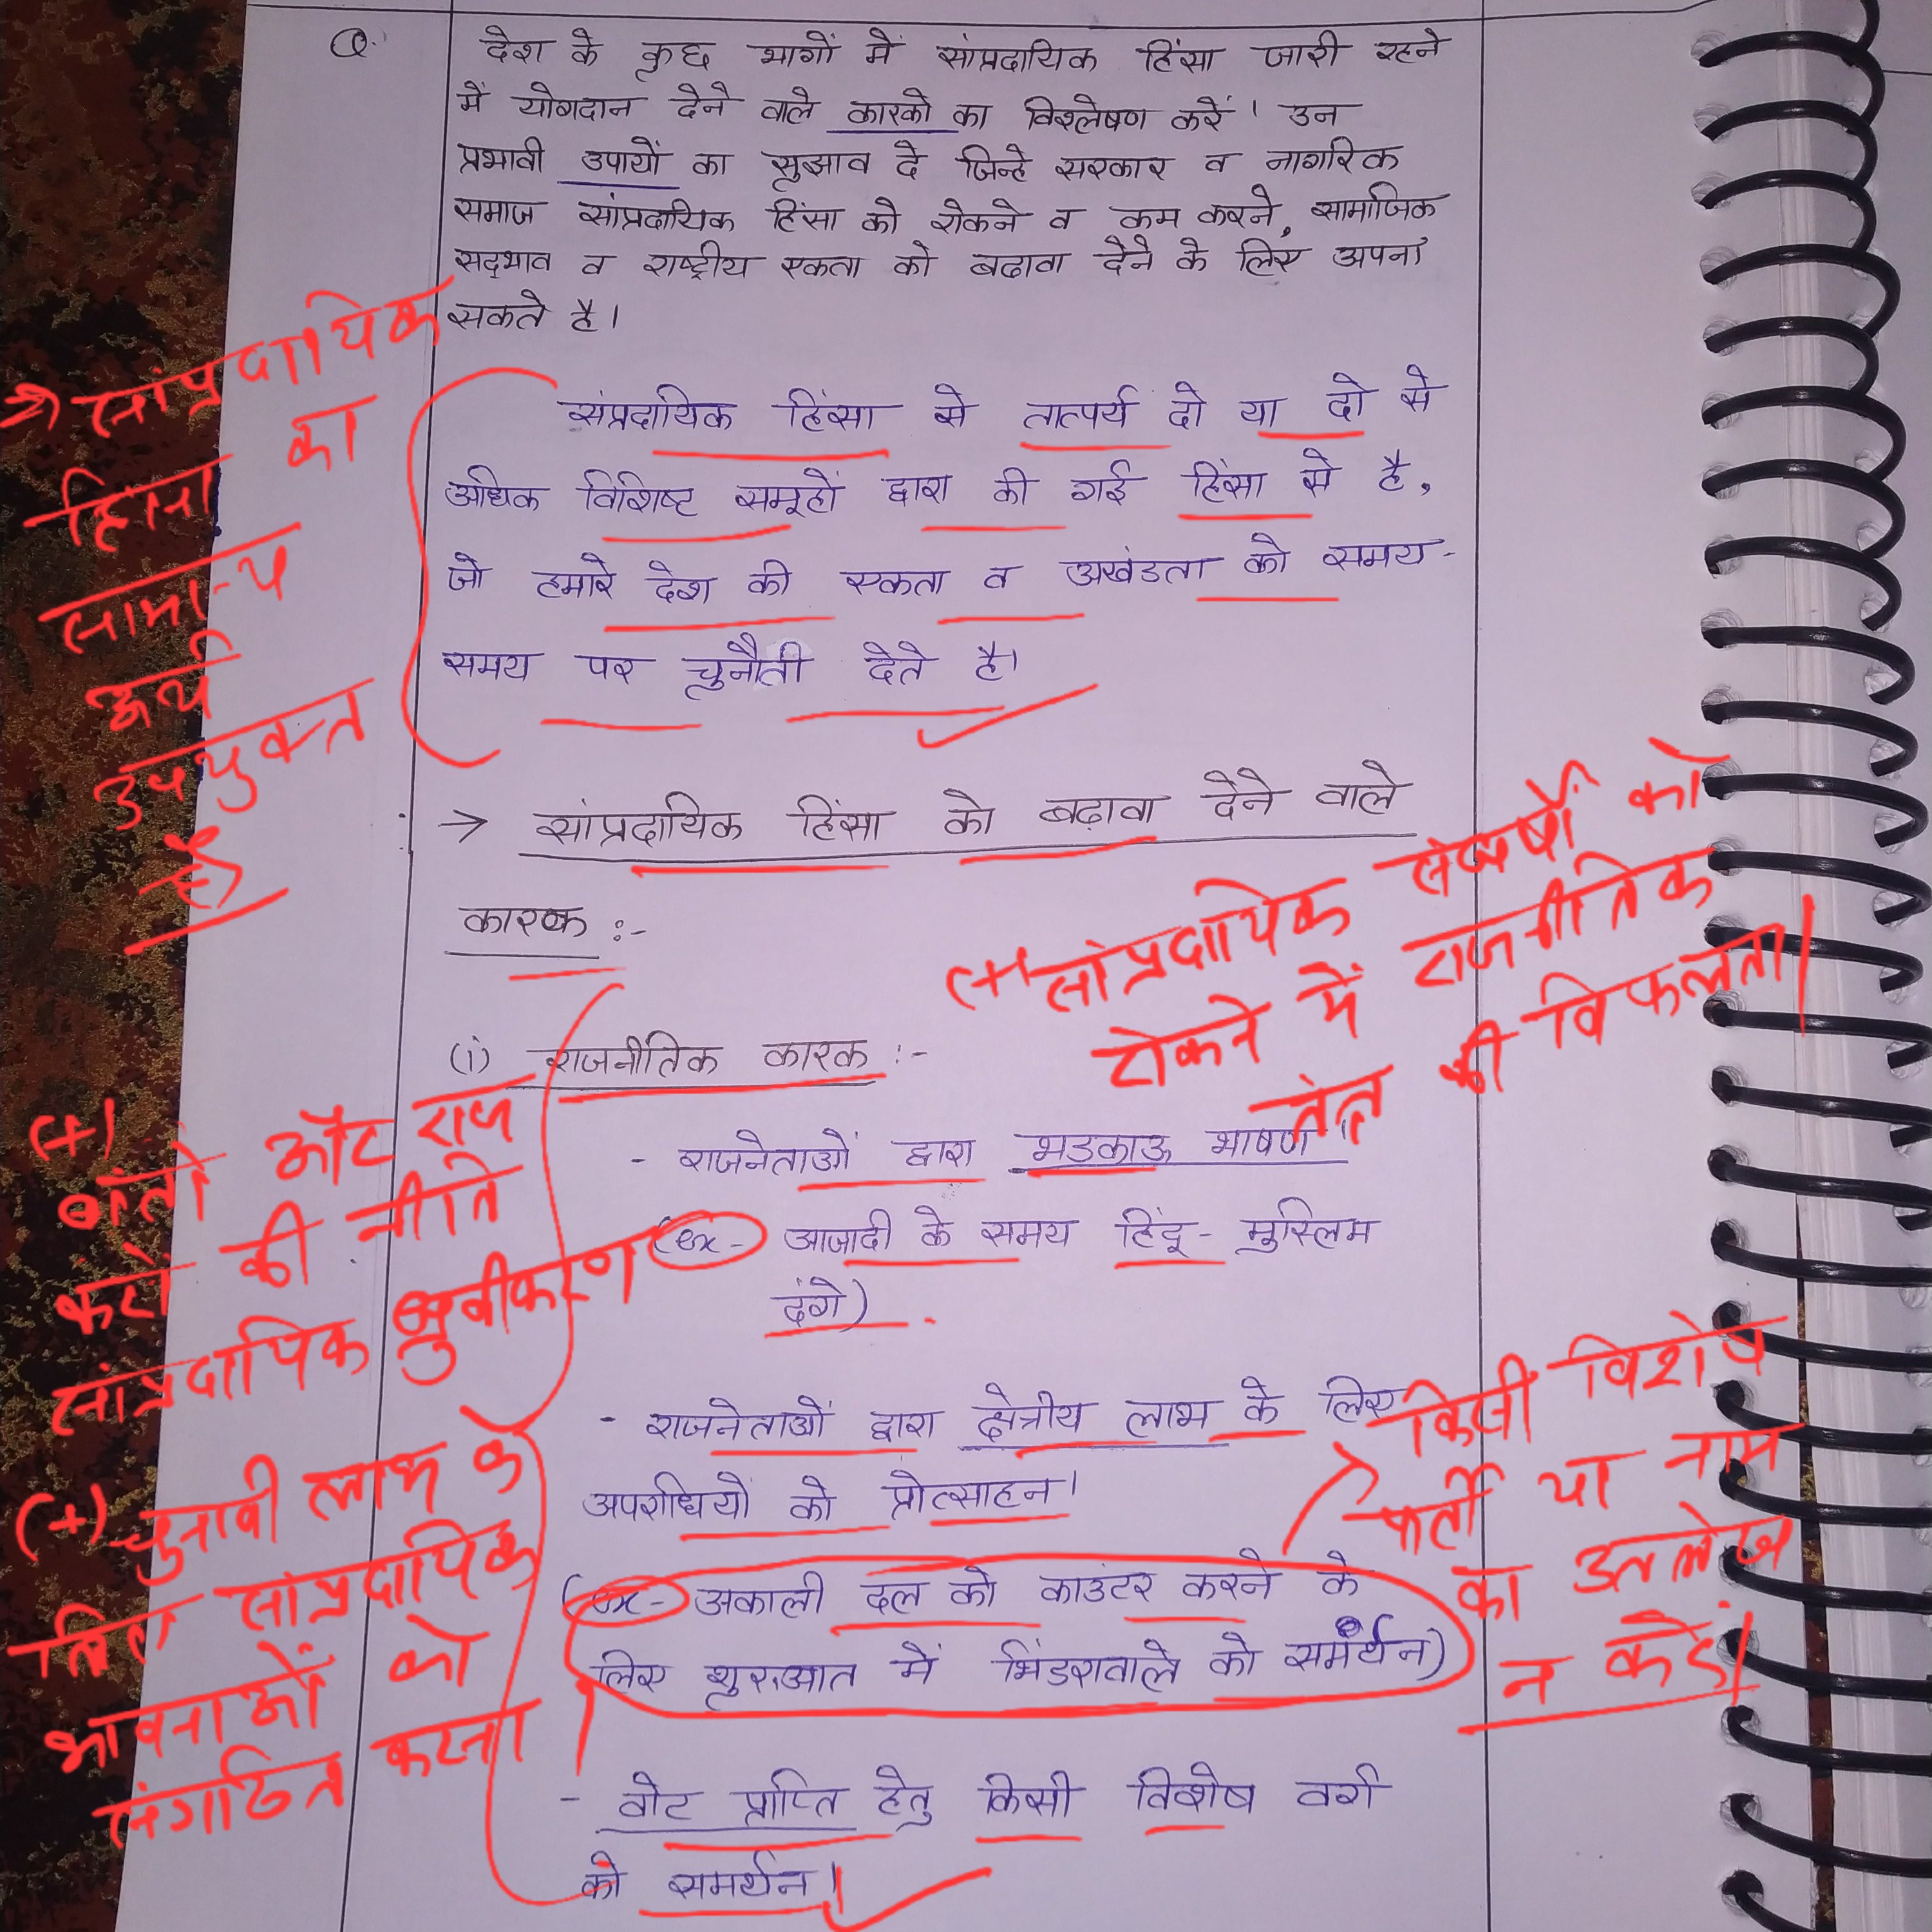 Q. देश के कुछ भागों में सांप्रदायिक हिंसा जारी रहने
में योगदान देने वाले कारकों का विश्लेषण करें। उन
प्रभावी उपायों का सुझाव दे जिन्हे सरकार व नागरिक
समाज सांप्रदायिक हिंसा को रोकने व कम करने, सामाजिक
सद्‌भाव व राष्ट्रीय एकता को बढावा देने के लिए अपना
सकते है।
→ सांप्रदायिक
हिंसा का
सामान्य
अर्थ
उपयुक्त
है
संप्रदायिक हिंसा से तात्पर्य दो या दो से
अधिक विशिष्ट समूहों द्वारा की गई हिंसा से है,
जो हमारे देश की एकता व अखंडता को समय-
समय पर चुनौती देते है।
→ सांप्रदायिक हिंसा को बढ़ावा देने वाले
कारक :-
(+) सांप्रदायिक संघर्षों को
रोकने में राजनीतिक
तंत्र की विफलता।
(i) राजनीतिक कारक :-
- राजनेताओं द्वारा भडकाऊ भाषण।
(ex- आजादी के समय हिंदू- मुस्लिम
दंगे)
(+)
बांटो और राज
करो की नीति
सांप्रदायिक ध्रुवीकरण
- राजनेताओं द्वारा क्षेत्रीय लाभ के लिए
अपराधियों को प्रोत्साहन।
(ex- अकाली दल को काउंटर करने के
लिए शुरुआत में भिंडरावाले को समर्थन)
(+) चुनावी लाभ के
लिए सांप्रदायिक
भावनाओं को
संगठित करना
→ किसी विशेष
पार्टी या नाम
का उल्लेख
न करें।
- वोट प्राप्ति हेतु किसी विशेष वर्ग
को समर्थन।